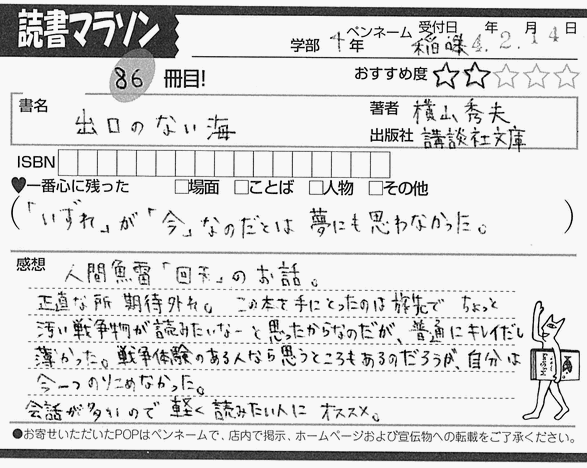 読書マラソン
学部 4年 ペンネーム 稲様 受付日 4.年2.月14日
86 冊目!
おすすめ度 ★★☆☆☆
書名 出口のない海
著者 横山秀夫
出版社 講談社文庫
ISBN
♥一番心に残った □場面 □ことば □人物 □その他
(「いずれ」が「今」なのだとは 夢にも思わなかった。)
感想 人間魚雷「回天」のお話。
正直な所 期待外れ。この本を手にとったのは旅先で ちょっと
汚い戦争物が読みたいなーと思ったからなのだが、普通にキレイだし
薄かった。戦争体験のある人なら思うところもあるのだろうが、自分は
今一つのりこめなかった。
会話が多いので 軽く読みたい人に オススメ。
●お寄せいただいたPOPはペンネームで、店内で掲示、ホームページおよび宣伝物への転載をご了承ください。